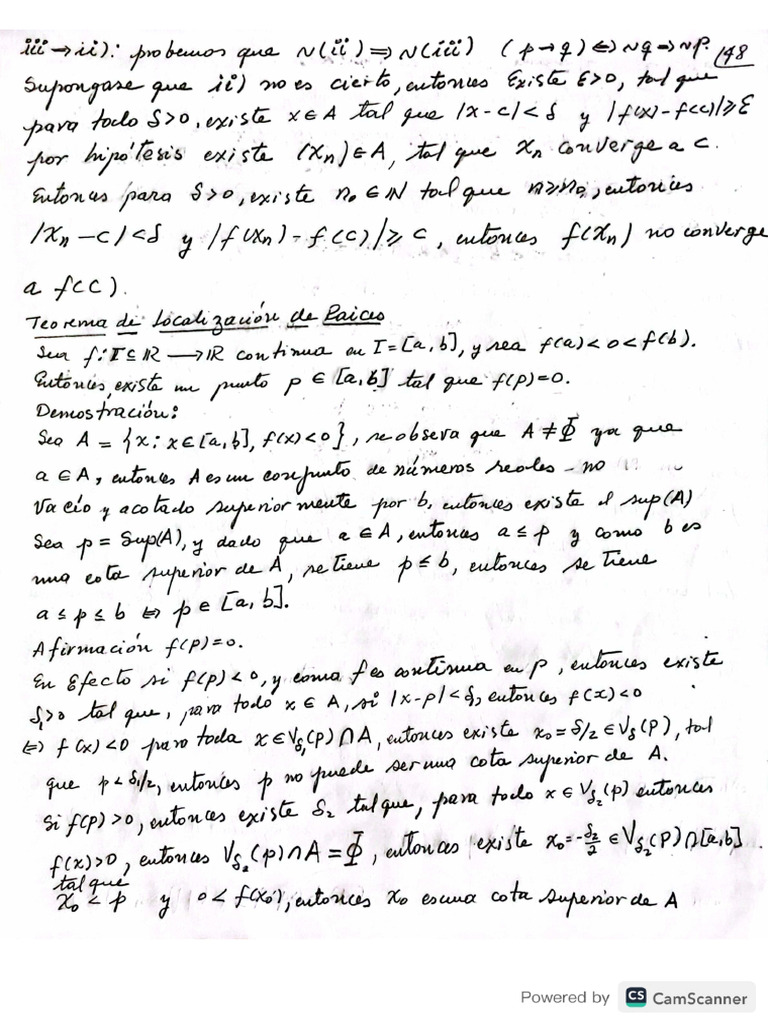 iii → ii): probemos que ~(ii) ⇒ ~(iii) (p → q) ⇔ ~q → ~p. 148
Supongase que ii) no es cierto, entonces Existe ε>0, tal que
para todo δ>0, existe x ∈ A tal que |x-c|<δ y |f(x)-f(c)|≥ε
por hipótesis existe (Xn) ∈ A, tal que Xn converge a c.
Entonces para δ>0, existe n₀ ∈ ℕ tal que n≥n₀, entonces
|Xn-c|<δ y |f(Xn)-f(c)|≥ c, entonces f(Xn) no converge
a f(c).
Teorema de Localización de Raices
Sea f: I ⊆ ℝ → ℝ continua en I=[a,b], y sea f(a)<0<f(b).
Entonces, existe un punto p ∈ [a,b] tal que f(p)=0.
Demostración:
Sea A = {x: x∈[a,b], f(x)<0}, se observa que A ≠ Φ ya que
a ∈ A, entonces A es un conjunto de números reales - no
vacío y acotado superiormente por b, entonces existe el sup(A)
Sea p = Sup(A), y dado que a ∈ A, entonces a ≤ p y como b es
una cota superior de A, se tiene p ≤ b, entonces se tiene
a ≤ p ≤ b ⇔ p ∈ [a,b].
Afirmación f(p)=0.
En Efecto si f(p)<0, y como f es continua en p, entonces existe
δ₁>0 tal que, para todo x ∈ A, si |x-p|<δ, entonces f(x)<0
⇔ f(x)<0 para toda x∈Vδ₁(p)∩A, entonces existe x₀=δ/2 ∈ Vδ₁(p), tal
que p < δ₁/2, entonces p no puede ser una cota superior de A.
Si f(p)>0, entonces existe δ₂ tal que, para todo x ∈ Vδ₂(p) entonces
f(x)>0, entonces Vδ₂(p)∩A=Φ, entonces existe x₀=-δ₂/2 ∈ Vδ₂(p)∩[a,b]
tal que
x₀ < p y 0<f(x₀), entonces x₀ es una cota superior de A
Powered by CS CamScanner